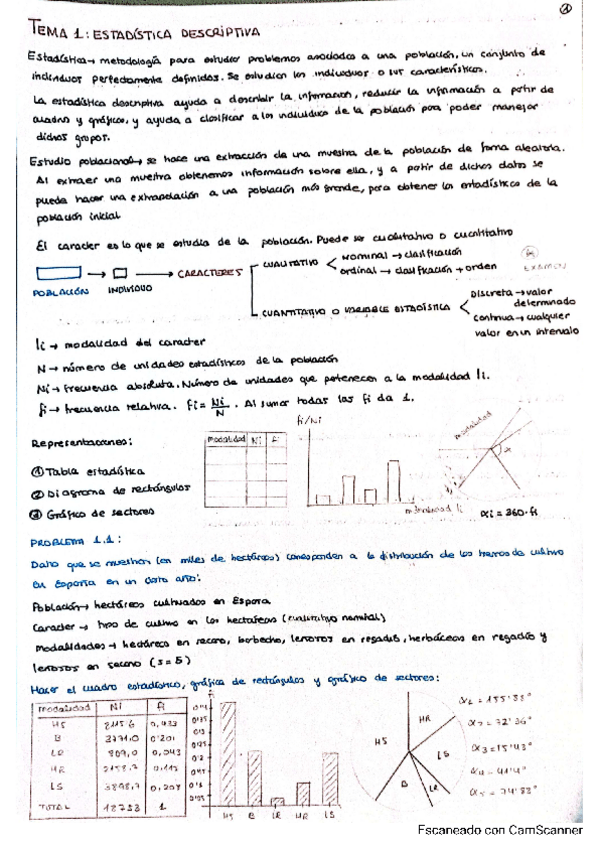 1
TEMA 1: ESTADÍSTICA DESCRIPTIVA
Estadística → metodología para estudiar problemas asociados a una población, un conjunto de
individuos perfectamente definidos. Se estudian los individuos o sus características.
La estadística descriptiva ayuda a describir la información, reducir la información a partir de
cuadros y gráficos, y ayuda a clasificar a los individuos de la población para poder manejar
dichos grupos.
Estudio poblacional → se hace una extracción de una muestra de la población de forma aleatoria.
Al extraer una muestra obtenemos información sobre ella, y a partir de dichos datos se
puede hacer una extrapolación a una población más grande, para obtener los estadísticos de la
población inicial
El caracter es lo que se estudia de la población. Puede ser cualitativo o cuantitativo
POBLACIÓN → INDIVIDUO → CARACTERES
CUALITATIVO
nominal → clasificación
ordinal → clasificación + orden
EXAMEN
CUANTITATIVO O VARIABLE ESTADÍSTICA
Discreta → valor
determinado
continua → cualquier
valor en un intervalo
li → modalidad del caracter
N → número de unidades estadísticas de la población
Ni → Frecuencia absoluta. Número de unidades que pertenecen a la modalidad li.
fi → frecuencia relativa. fi = Ni/N. Al sumar todas las fi da 1.
Representaciones:
① Tabla estadística
② Diagrama de rectángulos
③ Gráfico de sectores
modalidad Ni fi
fi/Ni
modalidad li
modalidad
αi = 360·fi
PROBLEMA 1.1:
Datos que se muestran (en miles de hectáreas) corresponden a la distribución de las tierras de cultivo
en España en un dato año:
Población → hectáreas cultivadas en España
Caracter → tipo de cultivo en las hectáreas (cualitativo nominal)
modalidades → hectáreas en secano, barbecho, leñosos en regadío, herbáceas en regadío y
leñosos en secano (s = 5)
Hacer el cuadro estadístico, gráfica de rectángulos y gráfico de sectores:
modalidad Ni fi
HS
B
LR 809,0 0,043
HR
LS
TOTAL 18733 1
HS B LR HR LS
HS HR LS LR B
Escaneado con CamScanner